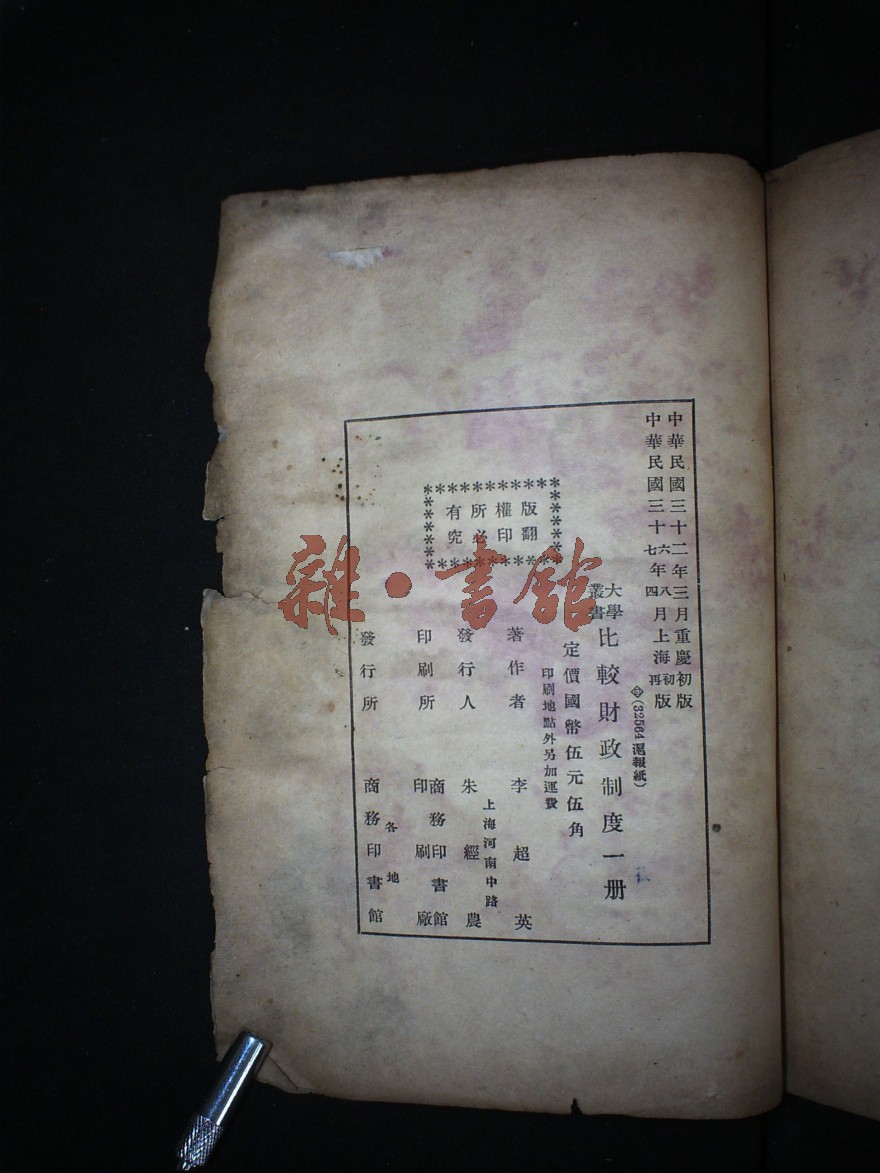 中華民國三十二年三月重慶初版
中華民國三十六年八月上海初版
七 四 再
(32564 滬報紙)
大學叢書
比較財政制度一册
定價國幣伍元伍角
印刷地點外另加運費
版權所有
翻印必究
著作者 李超英
上海河南中路
發行人 朱經農
印刷所 商務印書館印刷廠
各地
發行所 商務印書館
雜·書館